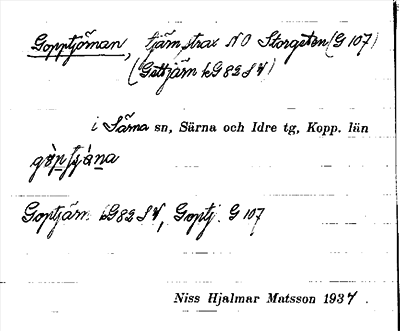 Gopptjärnan, tjärn strax NO Storgsten (G 107)
(Gettjärn kG 82 SV)
i Särna sn, Särna och Idre tg, Kopp. län
Goptjärn kG 82 SV, Goptj. G 107
Niss Hjalmar Matsson 1937.